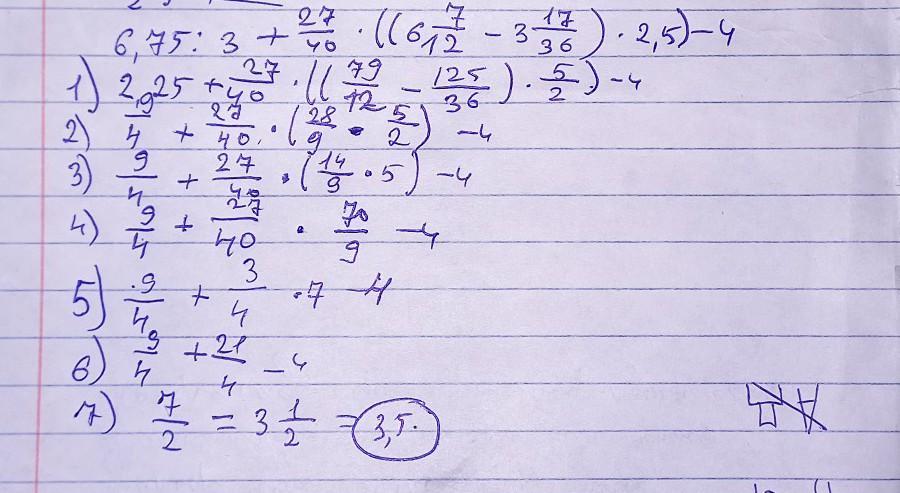 6,75 : 3 + 27/40 · ((6 7/12 - 3 17/36) · 2,5) - 4
1) 2,25 + 27/40 · ((79/12 - 125/36) · 5/2) - 4
2) 9/4 + 27/40 · (28/9 · 5/2) - 4
3) 9/4 + 27/40 · (14/9 · 5) - 4
4) 9/4 + 27/40 · 70/9 - 4
5) 9/4 + 3/4 · 7 - 4
6) 9/4 + 21/4 - 4
7) 7/2 = 3 1/2 = 3,5.